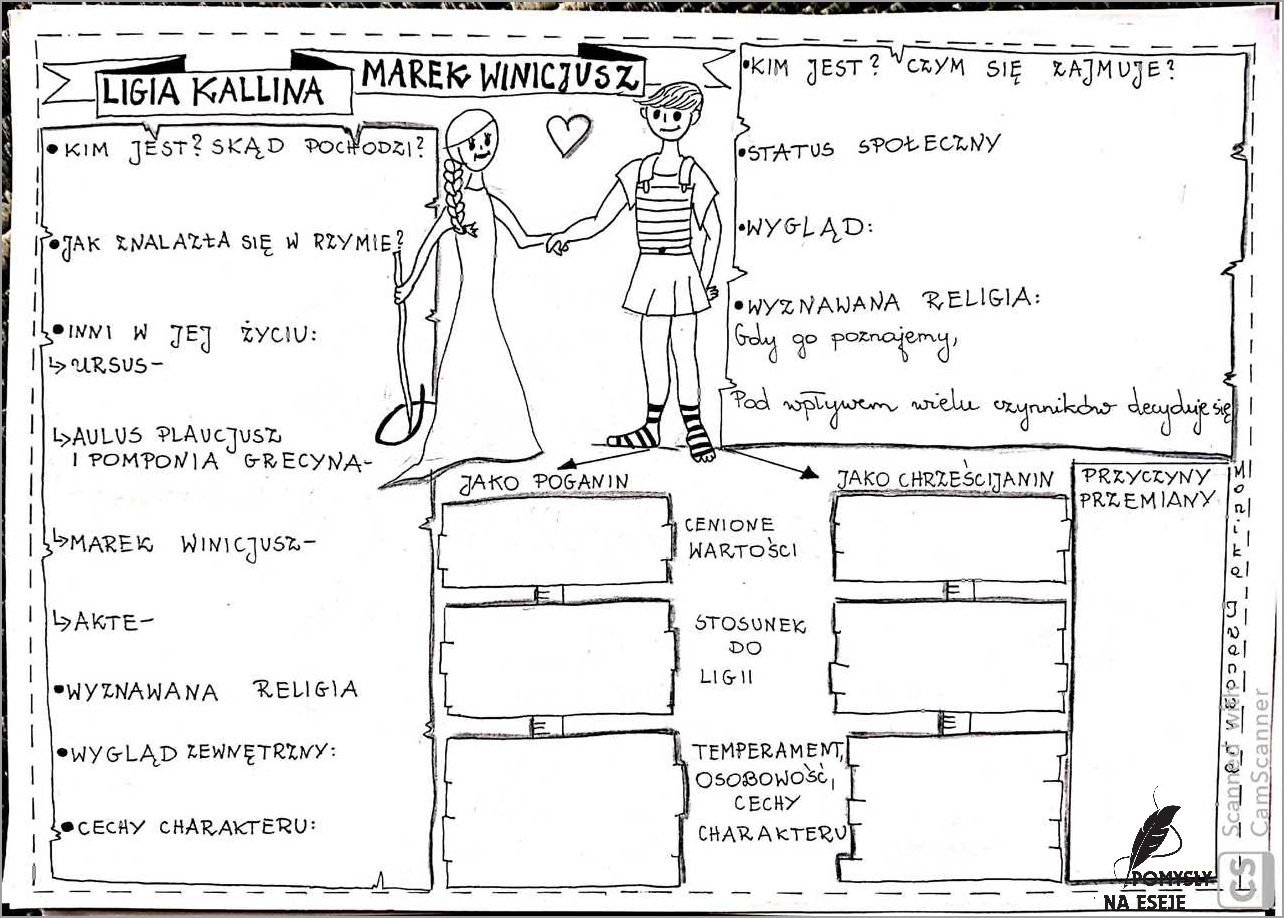 LIGIA KALLINA
MAREK WINICJUSZ
•KIM JEST? SKĄD POCHODZI?
•JAK ZNALAZŁA SIĘ W RZYMIE?
•INNI W JEJ ŻYCIU:
↳URSUS-
↳AULUS PLAUCJUSZ
I POMPONIA GRECYNA-
↳MAREK WINICJUSZ-
↳AKTE-
•WYZNAWANA RELIGIA
•WYGLĄD ZEWNĘTRZNY:
•CECHY CHARAKTERU:
•KIM JEST? CZYM SIĘ ZAJMUJE?
•STATUS SPOŁECZNY
•WYGLĄD:
•WYZNAWANA RELIGIA:
Gdy go poznajemy,
Pod wpływem wielu czynników decyduje się
JAKO POGANIN
JAKO CHRZEŚCIJANIN
CENIONE
WARTOŚCI
STOSUNEK
DO
LIGII
TEMPERAMENT,
OSOBOWOŚĆ,
CECHY
CHARAKTERU
PRZYCZYNY
PRZEMIANY
Monika
POMYSŁY
NA ESEJE
CS
Scanned with
CamScanner